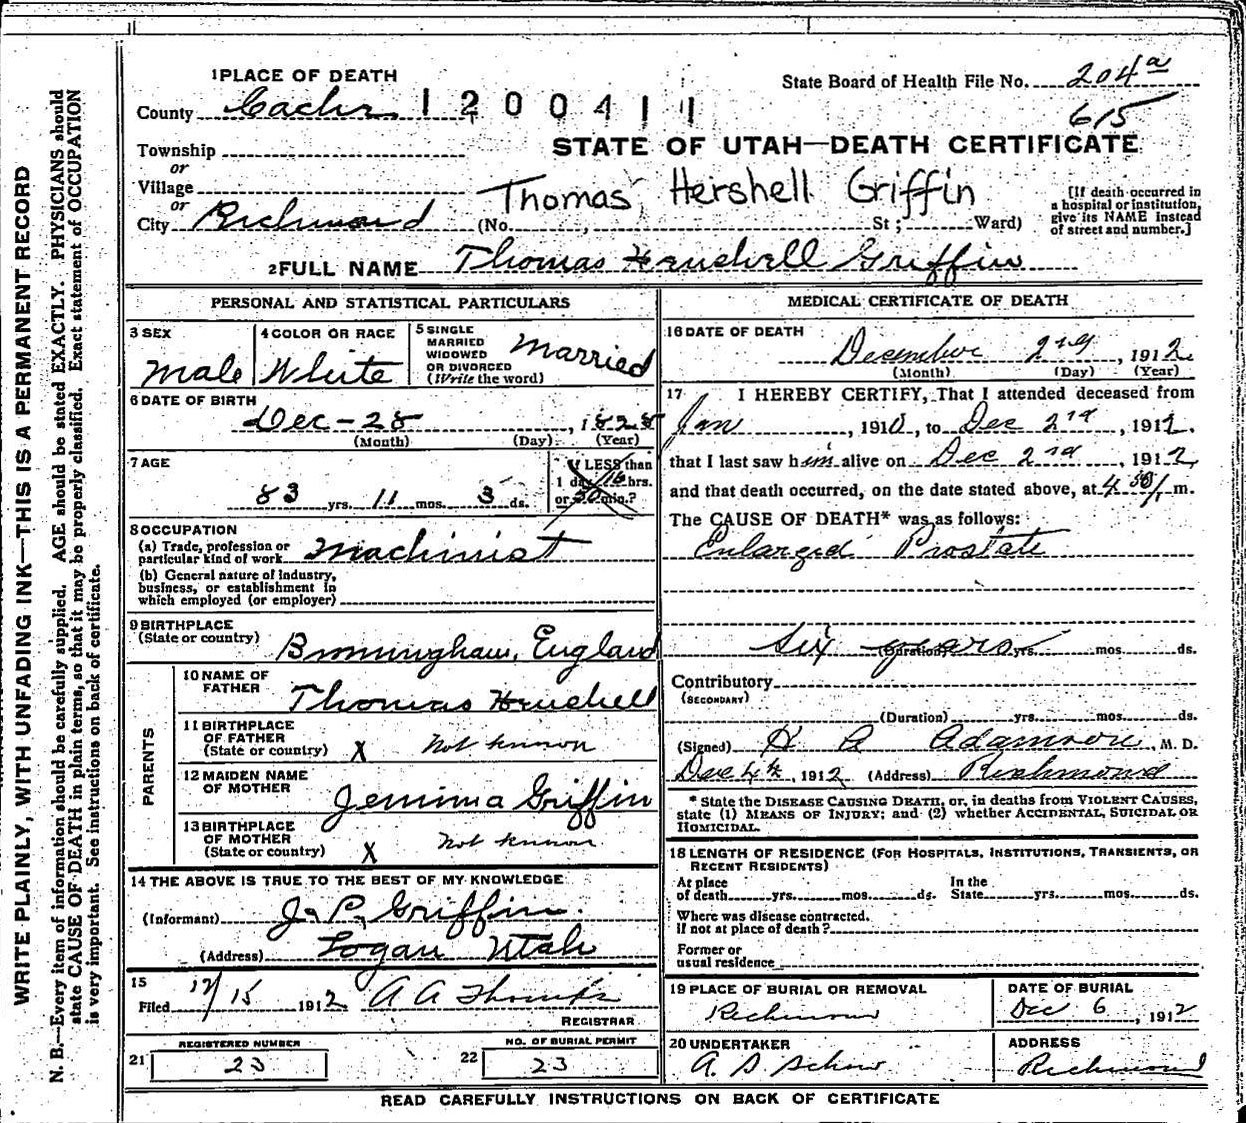 WRITE PLAINLY, WITH UNFADING INK—THIS IS A PERMANENT RECORD
N. B.—Every item of information should be carefully supplied. AGE should be stated EXACTLY. PHYSICIANS should
state CAUSE OF DEATH in plain terms, so that it may be properly classified. Exact statement of OCCUPATION
is very important. See instructions on back of certificate.
1 PLACE OF DEATH
State Board of Health File No. 204a
County Cache 1200411
615
STATE OF UTAH—DEATH CERTIFICATE
Township
or
Village
or
Thomas Hershell Griffin
City Richmond (No. St; Ward)
[If death occurred in
a hospital or institution,
give its NAME instead
of street and number.]
2 FULL NAME Thomas Henshell Griffin
PERSONAL AND STATISTICAL PARTICULARS
3 SEX
Male
4 COLOR OR RACE
White
5 SINGLE
MARRIED
WIDOWED
OR DIVORCED
(Write the word)
Married
6 DATE OF BIRTH
Dec - 28, 1828
(Month) (Day) (Year)
7 AGE
83 yrs. 11 mos. 3 ds.
If LESS than
1 day 16 hrs.
or 30 min.?
8 OCCUPATION
(a) Trade, profession or
particular kind of work Machinist
(b) General nature of industry,
business, or establishment in
which employed (or employer)
9 BIRTHPLACE
(State or country) Birmingham, England
PARENTS
10 NAME OF
FATHER Thomas Henshell
11 BIRTHPLACE
OF FATHER
(State or country) X Not known
12 MAIDEN NAME
OF MOTHER Jemima Griffin
13 BIRTHPLACE
OF MOTHER
(State or country) X Not known
14 THE ABOVE IS TRUE TO THE BEST OF MY KNOWLEDGE
(Informant) J. P. Griffin.
(Address) Logan Utah
15
Filed 12/15 1912 A A Thomas
REGISTRAR
REGISTERED NUMBER
21 23
NO. OF BURIAL PERMIT
22 23
MEDICAL CERTIFICATE OF DEATH
16 DATE OF DEATH
December 2nd, 1912
(Month) (Day) (Year)
17 I HEREBY CERTIFY, That I attended deceased from
Jan, 1910, to Dec 2nd, 1912,
that I last saw him alive on Dec 2nd, 1912,
and that death occurred, on the date stated above, at 4 30 m.
The CAUSE OF DEATH* was as follows:
Enlarged Prostate
Six years (Duration) yrs. mos. ds.
Contributory
(SECONDARY)
(Duration) yrs. mos. ds.
(Signed) A Adamson, M. D.
Dec 4th, 1912 (Address) Richmond
* State the DISEASE CAUSING DEATH, or, in deaths from VIOLENT CAUSES,
state (1) MEANS OF INJURY; and (2) whether ACCIDENTAL, SUICIDAL OR
HOMICIDAL.
18 LENGTH OF RESIDENCE (FOR HOSPITALS, INSTITUTIONS, TRANSIENTS, OR
RECENT RESIDENTS)
At place
of death yrs. mos. ds. In the
State yrs. mos. ds.
Where was disease contracted.
if not at place of death?
Former or
usual residence
19 PLACE OF BURIAL OR REMOVAL
Richmond
DATE OF BURIAL
Dec 6, 1912
20 UNDERTAKER
A. S. Schow
ADDRESS
Richmond
READ CAREFULLY INSTRUCTIONS ON BACK OF CERTIFICATE